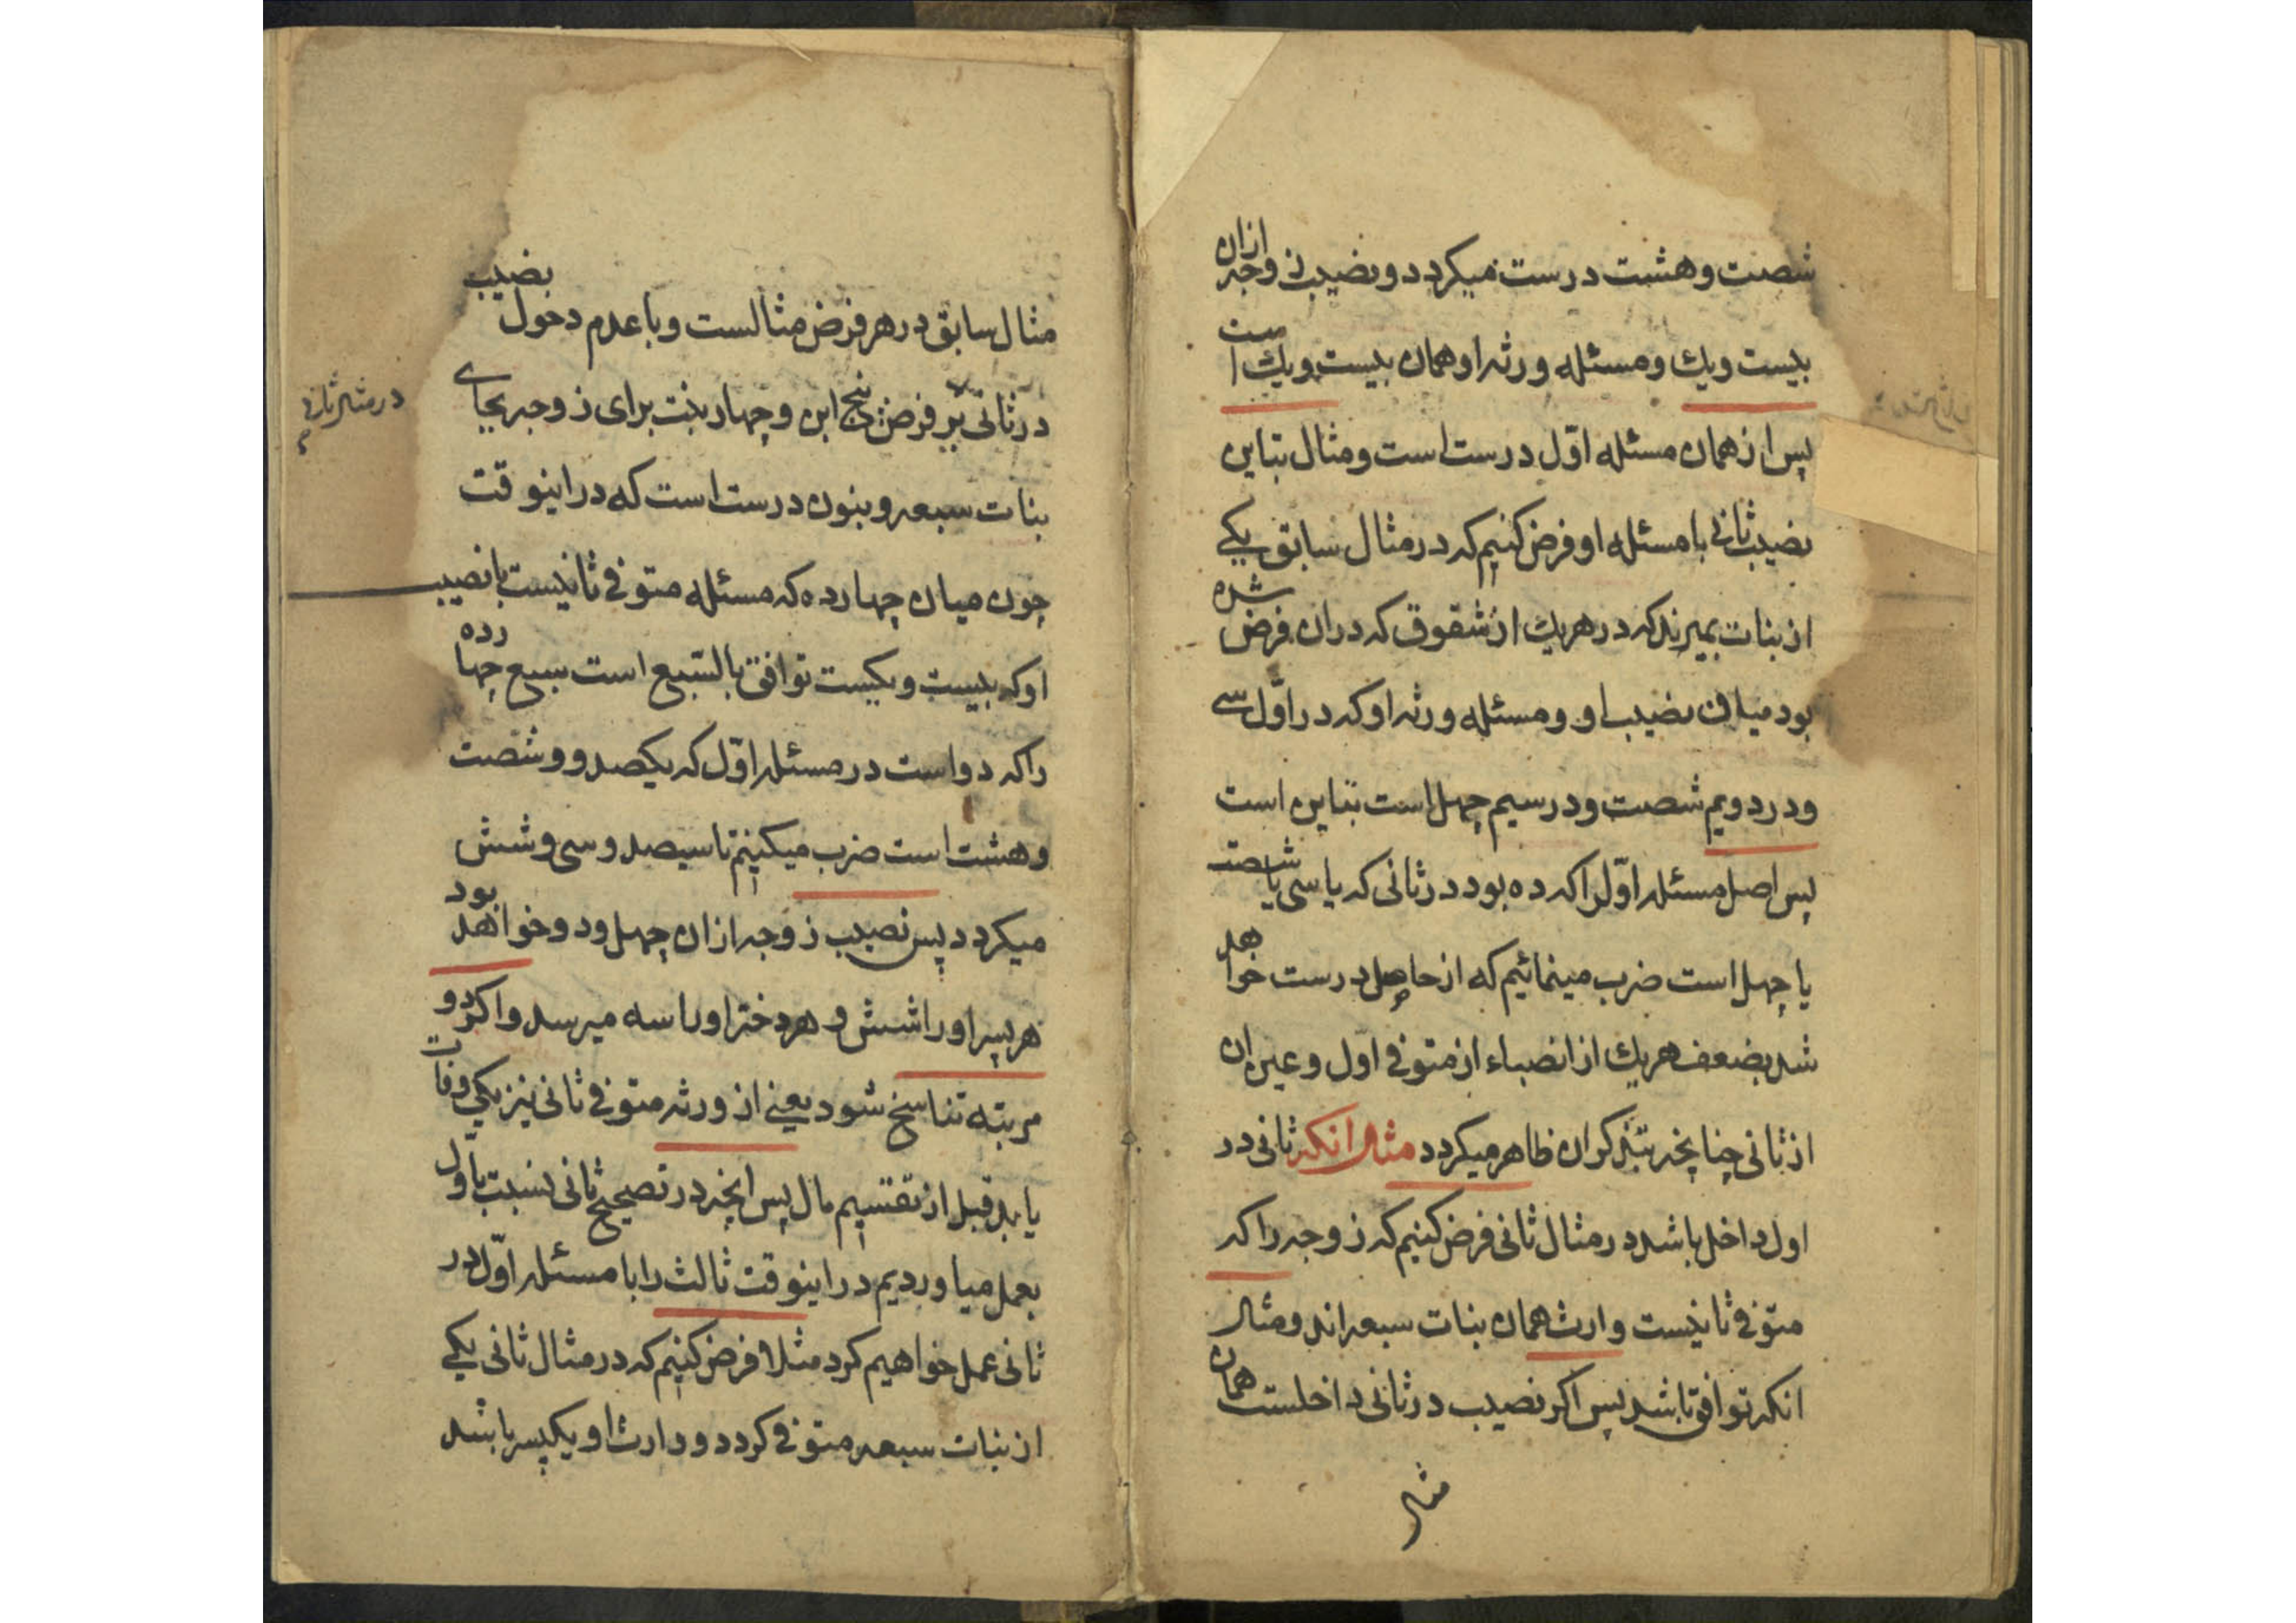 شصت و هشت درست میکردد و نصیب زوجه ازان
بیست ویك و مسئله ورثه او همان بیست ویك است
پس از همان مسئله اوّل درست است و مثال تباین
نصیب ثانی با مسئله او فرض کنیم که در مثال سابق یکی
از بنات بمیرند که در هریك از شقوق که دران فرض شده
بود میان نصیب او و مسئله ورثه او که در اوّل سی
و در دویم شصت و در سیم چهل است تباین است
پس اصل مسئله اوّل را که ده بود در ثانی که یا سی یا شصت
یا چهل است ضرب مینمائیم که از حاصل درست خواهد
شد بضعف هریك از انصباء از متوفی اول و عین ان
از ثانی چنانچه بتذکر ان ظاهر میکردد مثال انکه ثانی در
اول داخل باشد در مثال ثانی فرض کنیم که زوجه را که
متوفی ثانیست وارث همان بنات سبعه اند و مثال
انکه توافق باشد پس اکر نصیب در ثانی داخلست همان
مثال
مثال سابق در هر فرض مثالست و با عدم دخول نصیب
در ثانی بر فرض پنج ابن و چهار بنت برای زوجه بجای
در مثال ثانی
بنات سبعه و بنون درست است که در اینوقت
چون میان چهارده که مسئله متوفی ثانیست با نصیب
او که بیست و یکست توافق بالسّبع است سبع چهارده
را که دو است در مسئله اوّل که یکصد و شصت
و هشت است ضرب میکنیم تا سیصد و سی و شش
میکردد پس نصیب زوجه ازان چهل ودو خواهد بود
هر پسر او را شش و هر دختر او را سه میرسد و اکر دو
مرتبه تناسخ شود یعنی از ورثه متوفی ثانی نیز یکی وفات
یابد قبل از تقسیم مال پس انچه در تصحیح ثانی نسبت باوّل
بعمل میاوردیم در اینوقت ثالث را با مسئله اوّل در
ثانی عمل خواهیم کرد مثلا فرض کنیم که در مثال ثانی یکی
از بنات سبعه متوفی کردد و وارث او یکپسر باشد